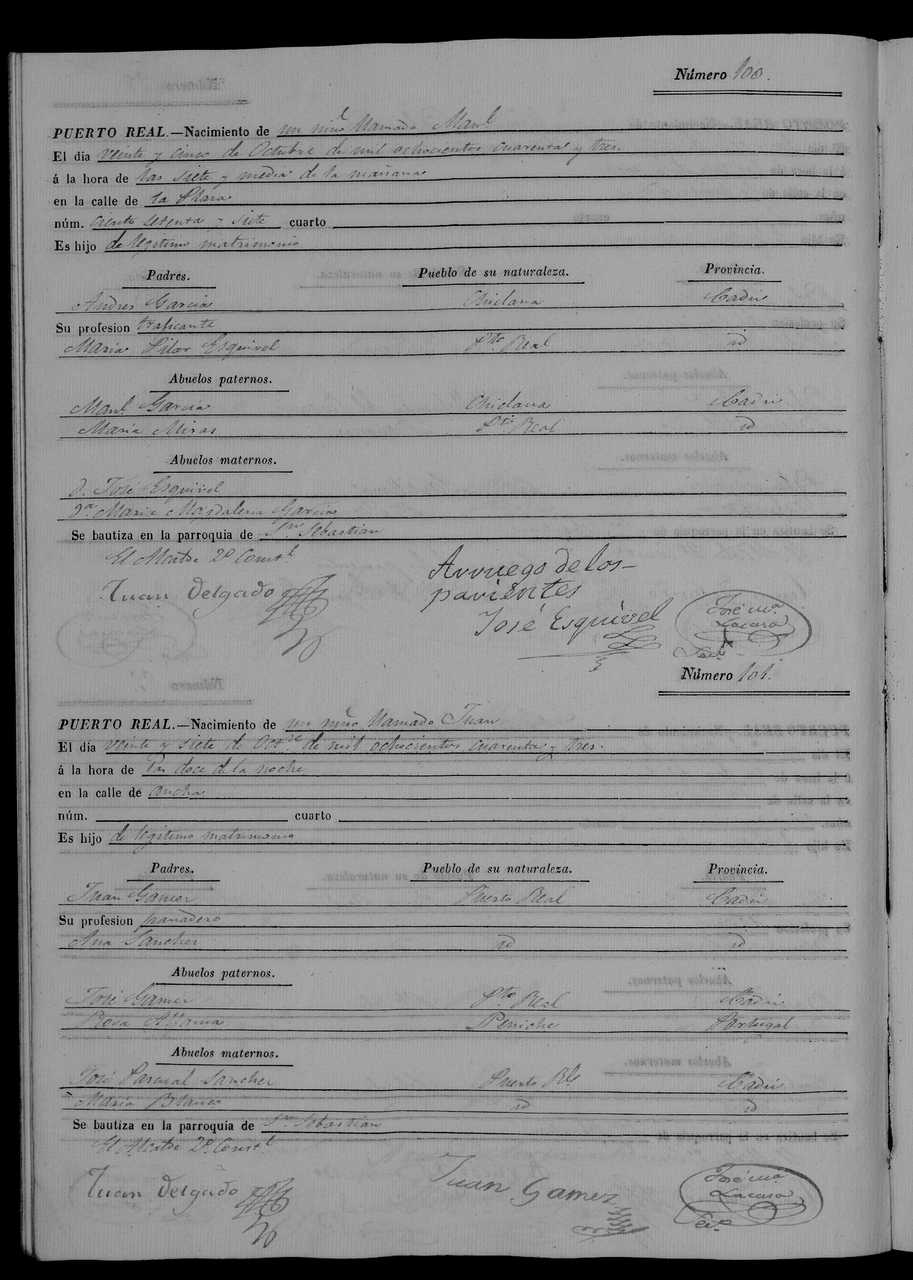 Número 100.
PUERTO REAL.—Nacimiento de un niño llamado Manl
El dia veinte y cinco de Octubre de mil ochocientos cuarenta y tres.
á la hora de las siete y media de la mañana
en la calle de la Plaza
núm. ciento setenta y siete cuarto
Es hijo de legitimo matrimonio
Padres. Pueblo de su naturaleza. Provincia.
Andres Garcia Chiclana Cadiz
Su profesion traficante
Maria Pilar Esquivel Pto Real id
Abuelos paternos.
Manl Garcia Chiclana Cadiz
Maria Miras Pto Real id
Abuelos maternos.
D. José Esquivel
Da Maria Magdalena Garcia
Se bautiza en la parroquia de Sn Sebastian
El Alcalde 2o Constl
Arruego de los
parientes
Juan Delgado
José Esquivel
José Ma
Lacasa
Número 101.
PUERTO REAL.—Nacimiento de un niño llamado Juan
El dia veinte y siete de Octre de mil ochocientos cuarenta y tres.
á la hora de las doce de la noche
en la calle de ancha
núm. cuarto
Es hijo de legitimo matrimonio
Padres. Pueblo de su naturaleza. Provincia.
Juan Gamez Puerto Real Cadiz
Su profesion panadero
Ana Sanchez id id
Abuelos paternos.
José Gamez Pto Real Cadiz
Rosa Peniche Portugal
Abuelos maternos.
José Pascual Sanchez Puerto Rl Cadiz
Maria Blanco id id
Se bautiza en la parroquia de Sn Sebastian
El Alcalde 2o Constl
Juan Delgado
Juan Gamez
José Ma
Lacasa